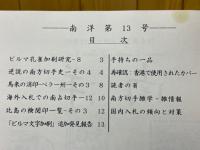 南洋第13号
目次
ビルマ孔雀加刷研究-8 3
逆説の南方切手史-その4 4
馬来の消印ペラー州-その3 8
海外入札での南占切手-12 10
比島の検閲印一覧-その3 12
「ビルマ文字加刷」追加発見報告 13
手持ちの一品
再確認：香港で使用されたカバー
読者の頁
南方切手雑学-雑情報
国内入札の傾向と対策